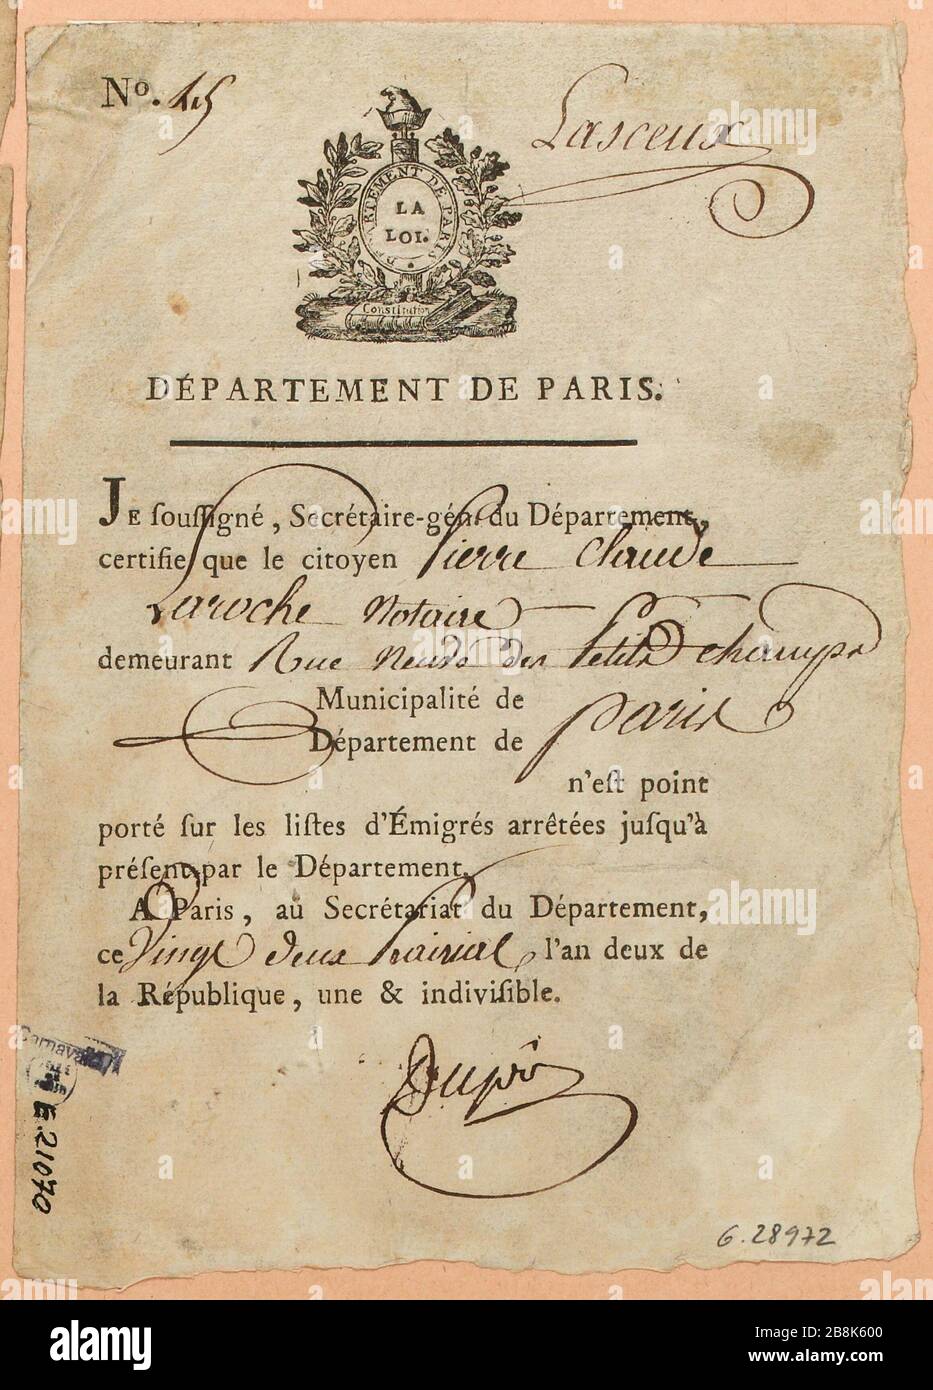 Nº. 45
Lasceux
DÉPARTEMENT DE PARIS
LA
LOI.
Constitution
DÉPARTEMENT DE PARIS.
JE souſſigné, Secrétaire-gén. du Département,
certifie que le citoyen Pierre Claude
Laroche Notaire
demeurant Rue Neuve des Petits champs
Municipalité de
Département de Paris
n'eſt point
porté ſur les liſtes d'Émigrés arrêtées juſqu'à
préſent par le Département.
A Paris, au Secrétariat du Département,
ce Vingt deux Prairial, l'an deux de
la République, une & indiviſible.
E.21070
G.28972
alamy
Image ID: 2B8K600
www.alamy.com